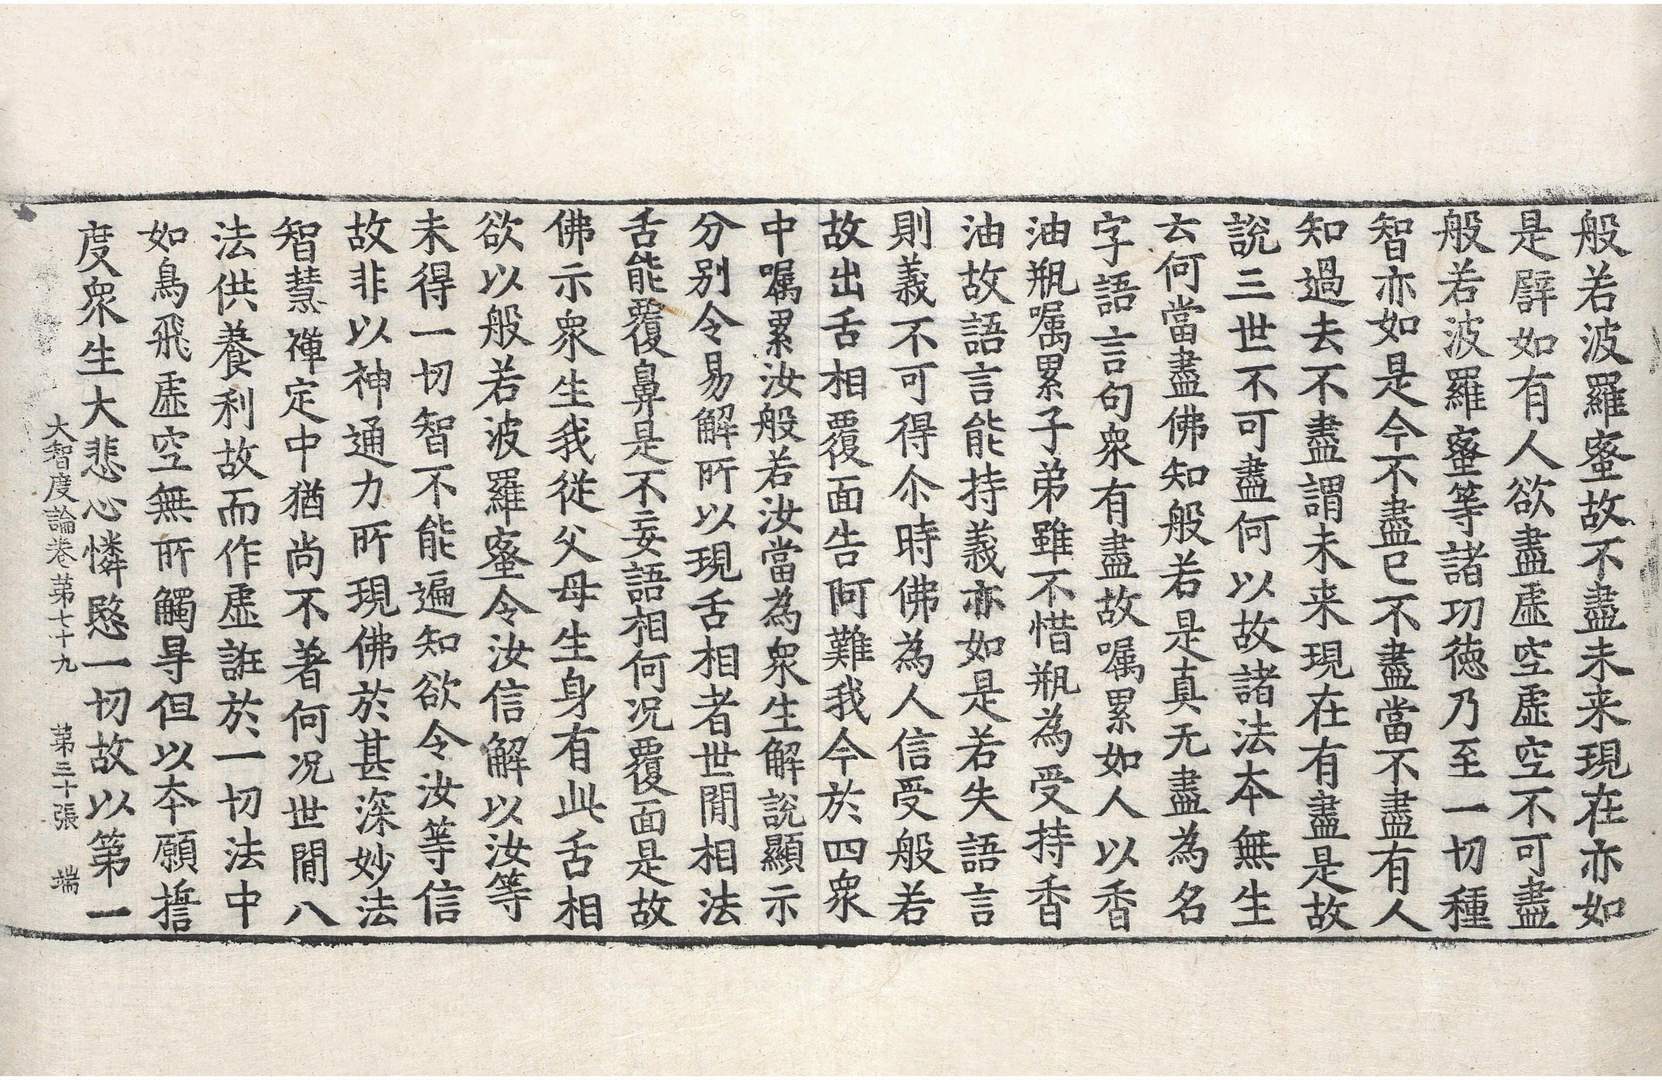 般若波羅蜜故不盡未来現在亦如
是譬如有人欲盡虛空虛空不可盡
般若波羅蜜等諸功德乃至一切種
智亦如是今不盡已不盡當不盡有人
知過去不盡謂未来現在有盡是故
說三世不可盡何以故諸法本無生
云何當盡佛知般若是真无盡為名
字語言句衆有盡故嘱累如人以香
油瓶嘱累子弟雖不惜瓶為受持香
油故語言能持義亦如是若失語言
則義不可得尒時佛為人信受般若
故出舌相覆面告阿難我今於四衆
中嘱累汝般若汝當為衆生解說顯示
分別令易解所以現舌相者世閒相法
舌能覆鼻是不妄語相何况覆面是故
佛示衆生我從父母生身有此舌相
欲以般若波羅蜜令汝信解以汝等
未得一切智不能遍知欲令汝等信
故非以神通力所現佛於甚深妙法
智慧禪定中猶尚不著何况世閒八
法供養利故而作虛誑於一切法中
如鳥飛虛空無所觸㝵但以本願擔
度衆生大悲心憐愍一切故以第一
大智度論卷第七十九　第三十張　端